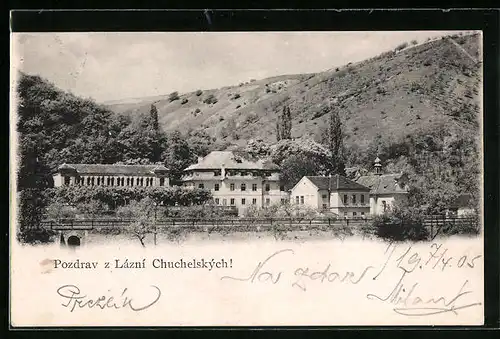 Pozdrav z Lázní Chuchelských!
Nas zdar! 19 7/4 05
Milan